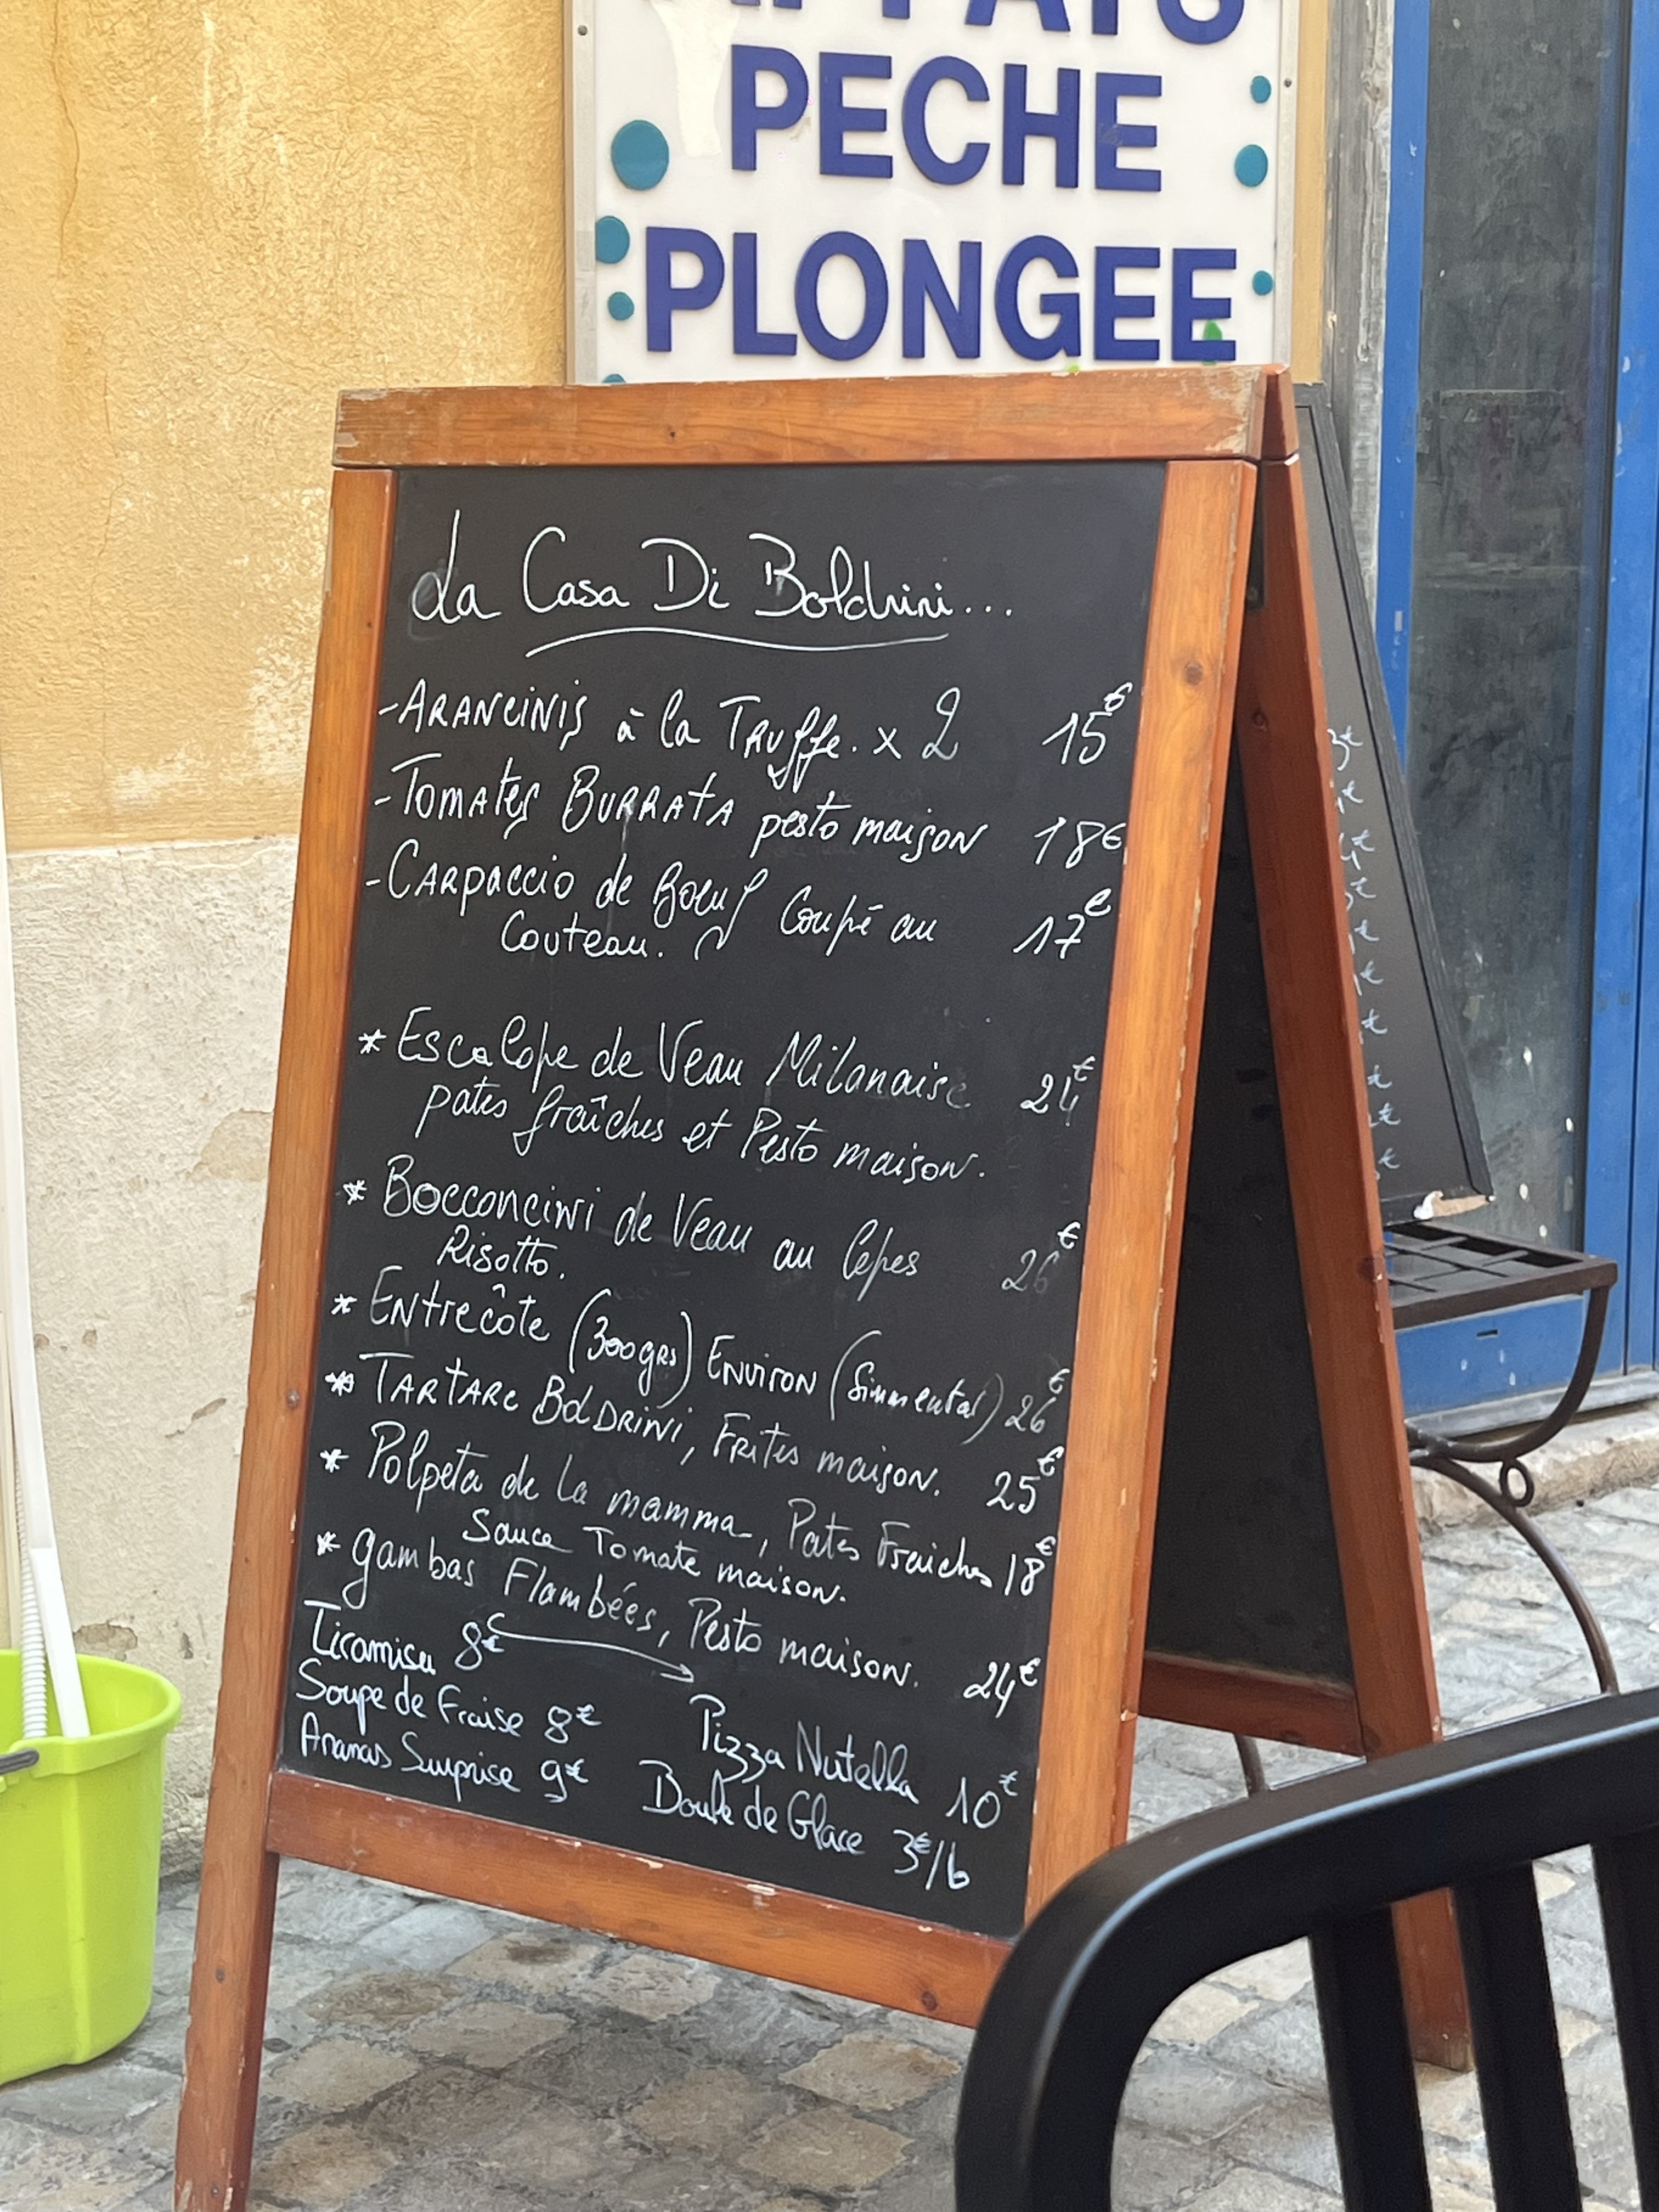 PECHE
PLONGEE
La Casa Di Boldrini...
-ARANCINIS à la TRuffe. x 2 15€
-TOMAtes BURRAtA pesto maison 18€
-CARpaccio de Boeuf Coupé au 17€
Couteau.
* Escalope de Veau Milanaise 24€
pates fraîches et Pesto maison.
* Bocconcini de Veau au Cèpes 26€
Risotto.
* Entrecôte (300grs) Environ (Simmental) 26€
* TARTARE BOLDRINI, Frites maison. 25€
* Polpeta de La mamma, Pates Fraiches 18€
Sauce Tomate maison.
* gambas Flambées, Pesto maison. 24€
Tiramisu 8€
Soupe de Fraise 8€ Pizza Nutella 10€
Ananas Surprise 9€ Boule de Glace 3€/b